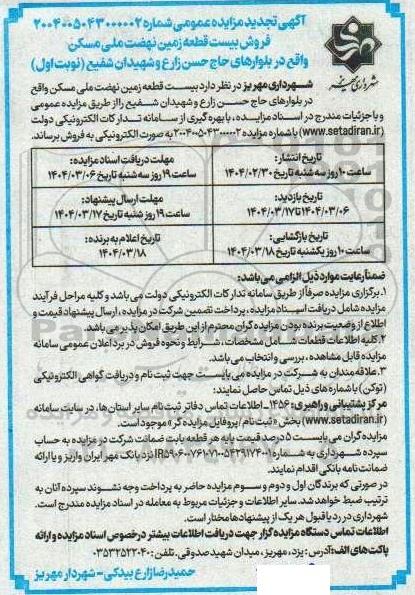 آگهی تجدید مزایده عمومی شماره ۲۰۰۴۰۰۵۰۴۳۰۰۰۰۰۲
فروش بیست قطعه زمین نهضت ملی مسکن
واقع در بلوارهای حاج حسن زارع و شهیدان شفیع (نوبت اول)
شهرداری مهریز
شهرداری مهریز در نظر دارد بیست قطعه زمین نهضت ملی مسکن واقع
در بلوارهای حاج حسن زارع و شهیدان شفیع را از طریق مزایده عمومی
و با جزئیات مندرج در اسناد مزایده، با بهره گیری از سامانه تدارکات الکترونیکی دولت
(www.setadiran.ir) با شماره مزایده ۲۰۰۴۰۰۵۰۴۳۰۰۰۰۰۲ به صورت الکترونیکی به فروش برساند.
تاریخ انتشار: مهلت دریافت اسناد مزایده:
ساعت ۱۰ روز سه شنبه تاریخ ۱۴۰۴/۰۲/۳۰ ساعت ۱۹ روز سه شنبه تاریخ ۱۴۰۴/۰۳/۰۶
تاریخ بازدید: مهلت ارسال پیشنهاد:
۱۴۰۴/۰۳/۰۶ تا ۱۴۰۴/۰۳/۱۷ ساعت ۱۹ روز شنبه تاریخ ۱۴۰۴/۰۳/۱۷
تاریخ بازگشایی: تاریخ اعلام به برنده:
ساعت ۱۰ روز یکشنبه تاریخ ۱۴۰۴/۰۳/۱۸ ۱۴۰۴/۰۳/۱۸
ضمناً رعایت موارد ذیل الزامی می باشد:
۱. برگزاری مزایده صرفاً از طریق سامانه تدارکات الکترونیکی دولت می باشد و کلیه مراحل فرآیند
مزایده شامل دریافت اسناد مزایده، پرداخت تضمین شرکت در مزایده، ارسال پیشنهاد قیمت و
اطلاع از وضعیت برنده بودن مزایده گران محترم از این طریق امکان پذیر می باشد.
۲. کلیه اطلاعات قطعات شامل مشخصات، شرایط و نحوه فروش در برد اعلان عمومی سامانه
مزایده قابل مشاهده، بررسی و انتخاب می باشد.
۳. علاقه مندان به شرکت در مزایده می بایست جهت ثبت نام و دریافت گواهی الکترونیکی
(توکن) با شماره های ذیل تماس حاصل نمایند:
مرکز پشتیبانی و راهبری: ۱۴۵۶ اطلاعات تماس دفاتر ثبت نام سایر استان ها، در سایت سامانه
(www.setadiran.ir) بخش «ثبت نام / پروفایل مزایده گر» موجود است.
مزایده گران می بایست ۵ درصد قیمت پایه هر قطعه بابت ضمانت شرکت در مزایده به حساب
سپرده شهرداری به شماره نزد بانک مهر ایران واریز و یا ارائه
ضمانت نامه بانکی اقدام نمایند.
در صورتی که برندگان اول و دوم و سوم مزایده حاضر به پرداخت وجه نشوند سپرده آنان به
ترتیب ضبط خواهد شد. سایر اطلاعات و جزئیات مربوط به معامله در اسناد مزایده مندرج است.
شهرداری در رد یا قبول هر یک از پیشنهادها مختار است.
اطلاعات تماس دستگاه مزایده گزار جهت دریافت اطلاعات بیشتر در خصوص اسناد مزایده و ارائه
پاکت های الف: آدرس: یزد، مهریز، میدان شهید صدوقی. تلفن: ۰۳۵۳۲۵۲۲۰۴۰
حمیدرضا زارع بیدکی - شهردار مهریز